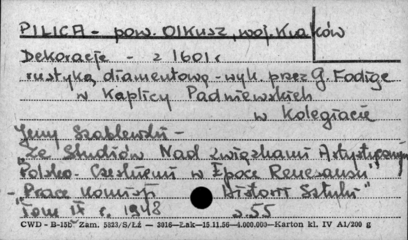 PILICA - pow. Olkusz, woj. Kraków
Dekoracje - z 1601 r
rustyką diamentową - wyk. przez G. Fodige
w Kaplicy Padniewskich
w Kolegiacie
Jerzy Szablewski -
"Ze Studiów Nad związkami Artystycznymi
Polsko-Czeskiemi w Epoce Renesansu"
- "Prace Komisji Historii Sztuki"
"Tom IX r. 1948 s. 55
CWD - B-155 Zam. 5823/S/Łż — 2016—Zak—15.11.56—4.000.003—Karton kl. IV A1/200 g